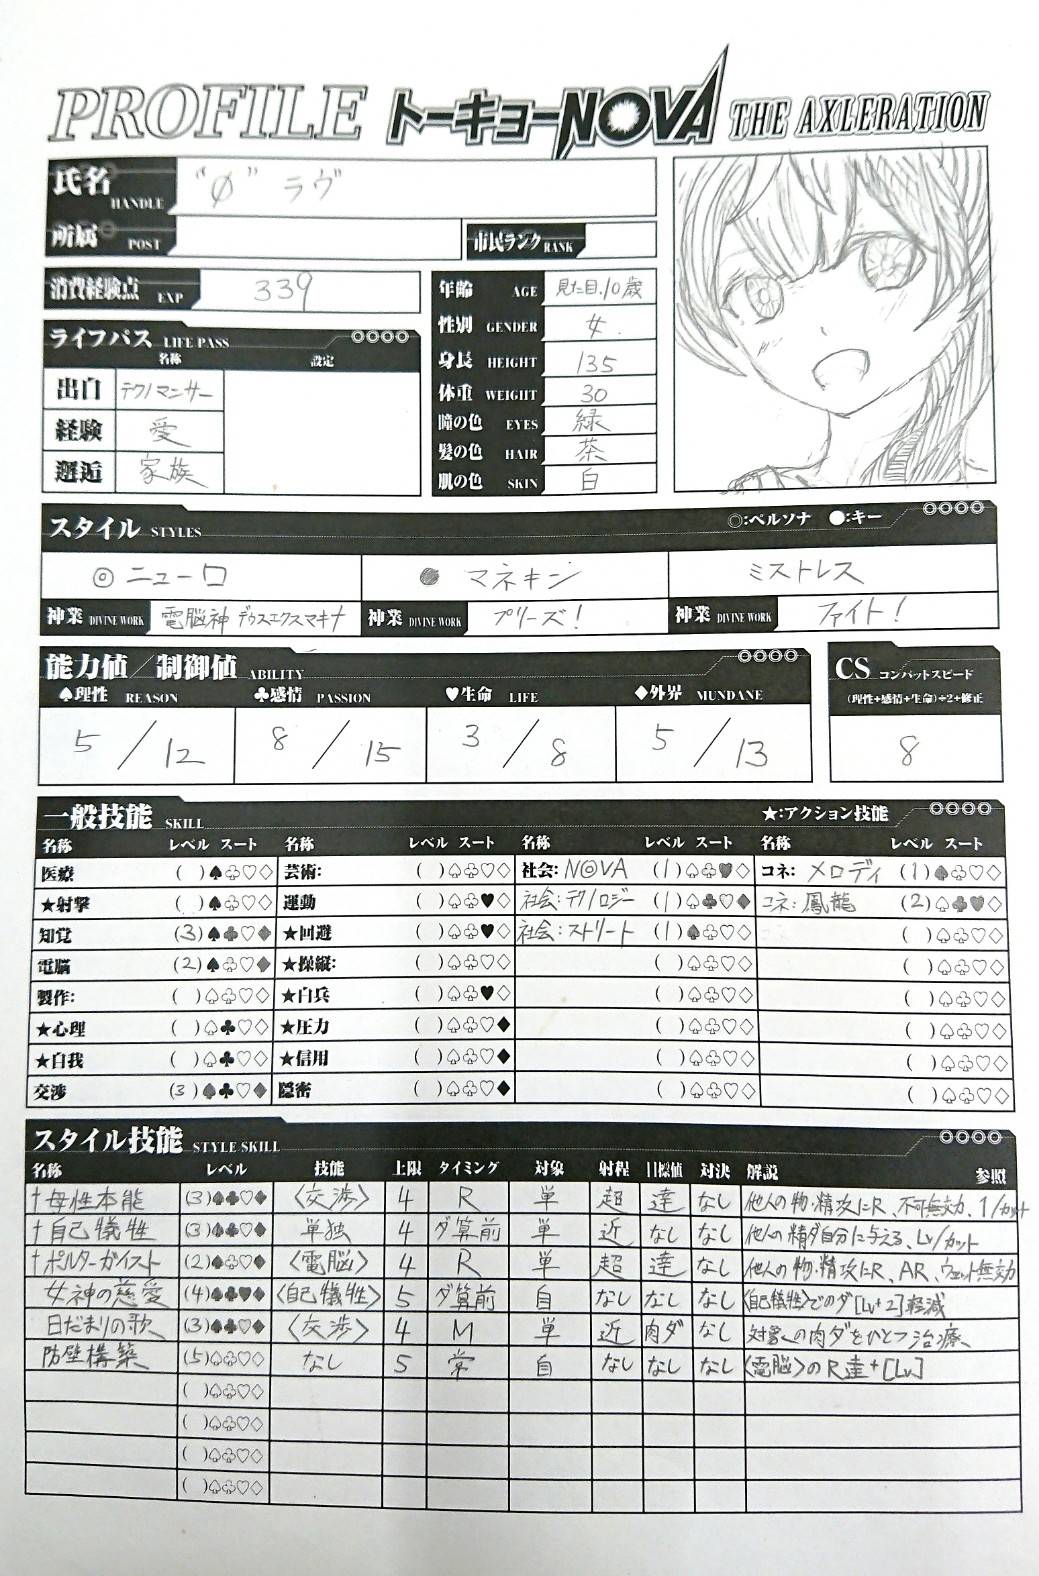 PROFILE トーキョーNOVA THE AXLERATION
氏名 HANDLE "Ø" ラヴ
所属 POST 市民ランク RANK
消費経験点 EXP 339
ライフパス LIFE PASS
名称 設定
出自 テクノマンサー
経験 愛
邂逅 家族
年齢 AGE 見た目10歳
性別 GENDER 女
身長 HEIGHT 135
体重 WEIGHT 30
瞳の色 EYES 緑
髪の色 HAIR 茶
肌の色 SKIN 白
スタイル STYLES ◎:ペルソナ ●:キー
◎ニューロ ● マネキン ミストレス
神業 DIVINE WORK 電脳神 デウスエクスマキナ 神業 DIVINE WORK プリーズ! 神業 DIVINE WORK ファイト!
能力値/制御値 ABILITY
♠理性 REASON ♣感情 PASSION ♥生命 LIFE ◆外界 MUNDANE
5/12 8/15 3/8 5/13
CS コンバットスピード
(理性+感情+生命)÷2+修正
8
一般技能 SKILL ★:アクション技能
名称 レベル スート 名称 レベル スート 名称 レベル スート 名称 レベル スート
医療 ( )♠♧♡◇ 芸術: ( )♤♧♡◇ 社会: N◎VA (1)♤♧♥◇ コネ: メロディ (1)♠♧♡◇
★射撃 ( )♠♧♡◇ 運動 ( )♤♧♥◇ 社会:テクノロジー (1)♤♣♡◆ コネ:鳳龍 (2)♤♣♥◇
知覚 (3)♠♣♡◆ ★回避 ( )♤♧♥◇ 社会:ストリート (1)♠♧♡◇ ( )♤♧♡◇
電脳 (2)♠♧♡◆ ★操縦: ( )♤♧♡◇ ( )♤♧♡◇ ( )♤♧♡◇
製作: ( )♤♧♡◇ ★白兵 ( )♤♧♥◇ ( )♤♧♡◇ ( )♤♧♡◇
★心理 ( )♤♣♡◇ ★圧力 ( )♤♧♡◆ ( )♤♧♡◇ ( )♤♧♡◇
★自我 ( )♤♣♡◇ ★信用 ( )♤♧♡◆ ( )♤♧♡◇ ( )♤♧♡◇
交渉 (3)♠♣♡◆ 隠密 ( )♤♧♡◆ ( )♤♧♡◇ ( )♤♧♡◇
スタイル技能 STYLE SKILL
名称 レベル 技能 上限 タイミング 対象 射程 目標値 対決 解説 参照
†母性本能 (3)♠♣♡◆ 〈交渉〉 4 R 単 超 達 なし 他人の物・精攻にR、不可無効、1/カット
†自己犠牲 (3)♠♣♡◆ 単独 4 ダ算前 単 近 なし なし 他人の精ダ自分に与える、Lv/カット
†ポルターガイスト (2)♠♧♡◆ 〈電脳〉 4 R 単 超 達 なし 他人の物・精攻にR、AR、ウェット無効
女神の慈愛 (4)♠♣♥◆ 〈自己犠牲〉 5 ダ算前 自 なし なし なし 〈自己犠牲〉でのダ[Lv+2]軽減
日だまりの歌 (3)♠♣♡◆ 〈交渉〉 4 M 単 近 肉ダ なし 対象への肉ダをひとつ治療
防壁構築 (5)♤♧♡◇ なし 5 常 自 なし なし なし 〈電脳〉のR達+[Lv]
( )♤♧♡◇
( )♤♧♡◇
( )♤♧♡◇
( )♤♧♡◇